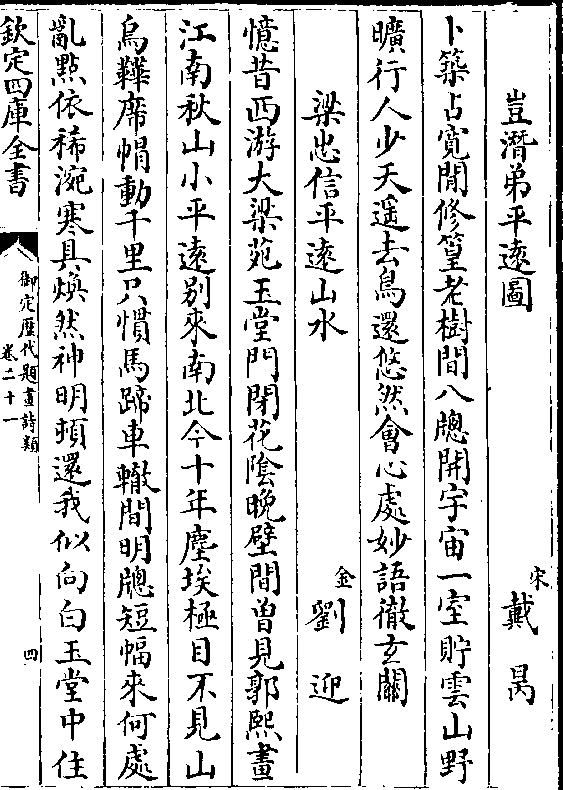 豈潛弟平逺圖　宋戴昺
卜築占寛閒修篁老樹間八牕開宇宙一室貯雲山野
曠行人少天遥去鳥還悠然會心處妙語徹玄關
梁忠信平逺山水　金劉迎
憶昔西游大梁苑玉堂門閉花隂晚壁間曽見郭熙畫
江南秋山小平逺别來南北今十年塵埃極目不見山
烏鞾席帽動千里只慣馬蹄車轍間明牕短幅來何處
亂點依稀涴寒具煥然神明頓還我似向白玉堂中住
欽定四庫全書
御定歴代題畫詩類
卷二十一
四